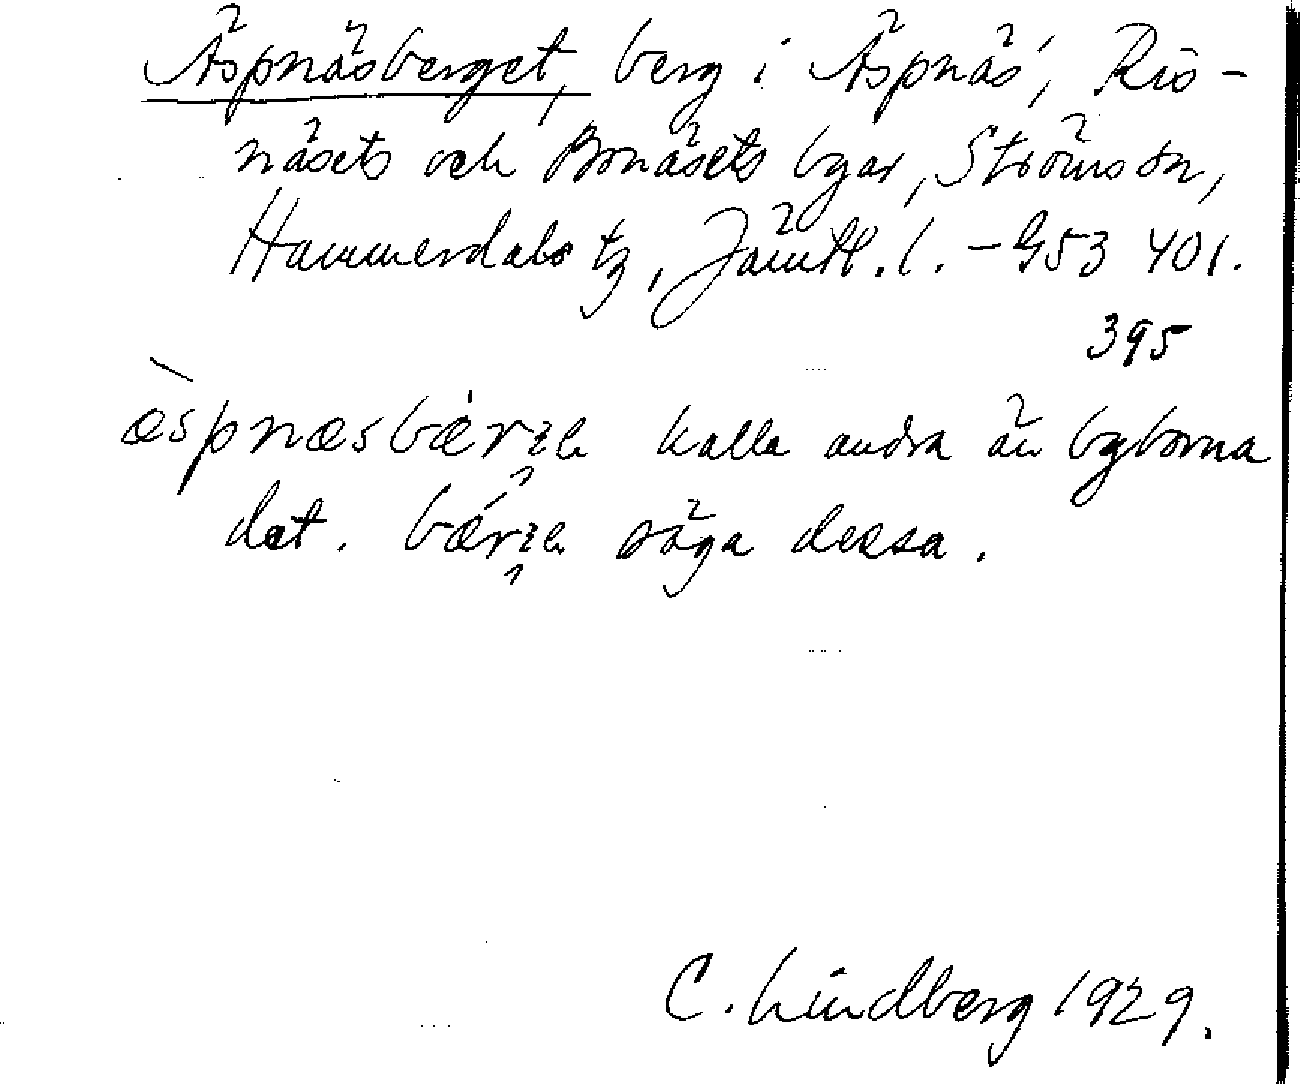 Äspnäsberget, berg i Äspnäs, Ris-
näsets och Bonäsets byar, Ströms sn,
Hammerdals tg, Jämtl. l. - G53 401.
395
kalla andra än byborna
det. säga dessa.
C. Lindberg 1929.